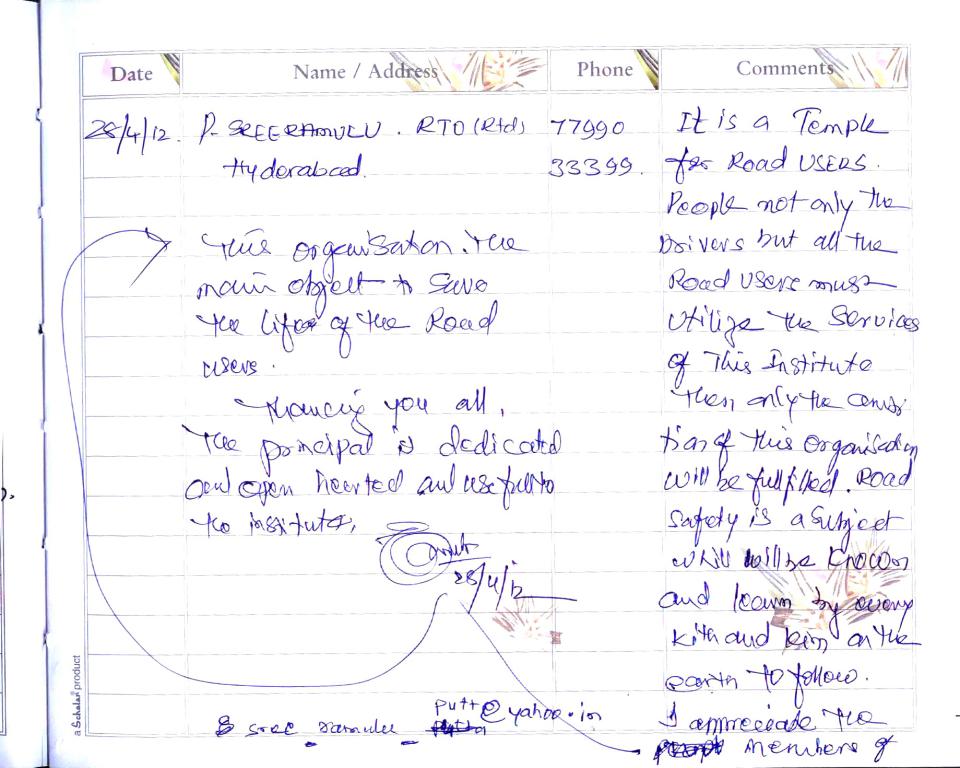 Date Name / Address Phone Comments
28/4/12. P. SREERAMULU. RTO (Rtd) 77990
Hyderabad. 33399.
It is a Temple
for Road USERS.
People not only the
Drivers but all the
Road users must
Utilize the Services
of This Institute
Then only the
tion of this organisation
will be fulfilled. Road
Safety is a subject
which will be known
and learn by every
kith and kin on the
earth to follow.
I appreciate the
members of
This organisation. The
main object to save
the lifes of the Road
users.
Thancing you all,
The principal is dedicated
and open hearted and usefull to
the institute,
28/4/12
sree_ramulu_putt@yahoo.in
a Scholar product